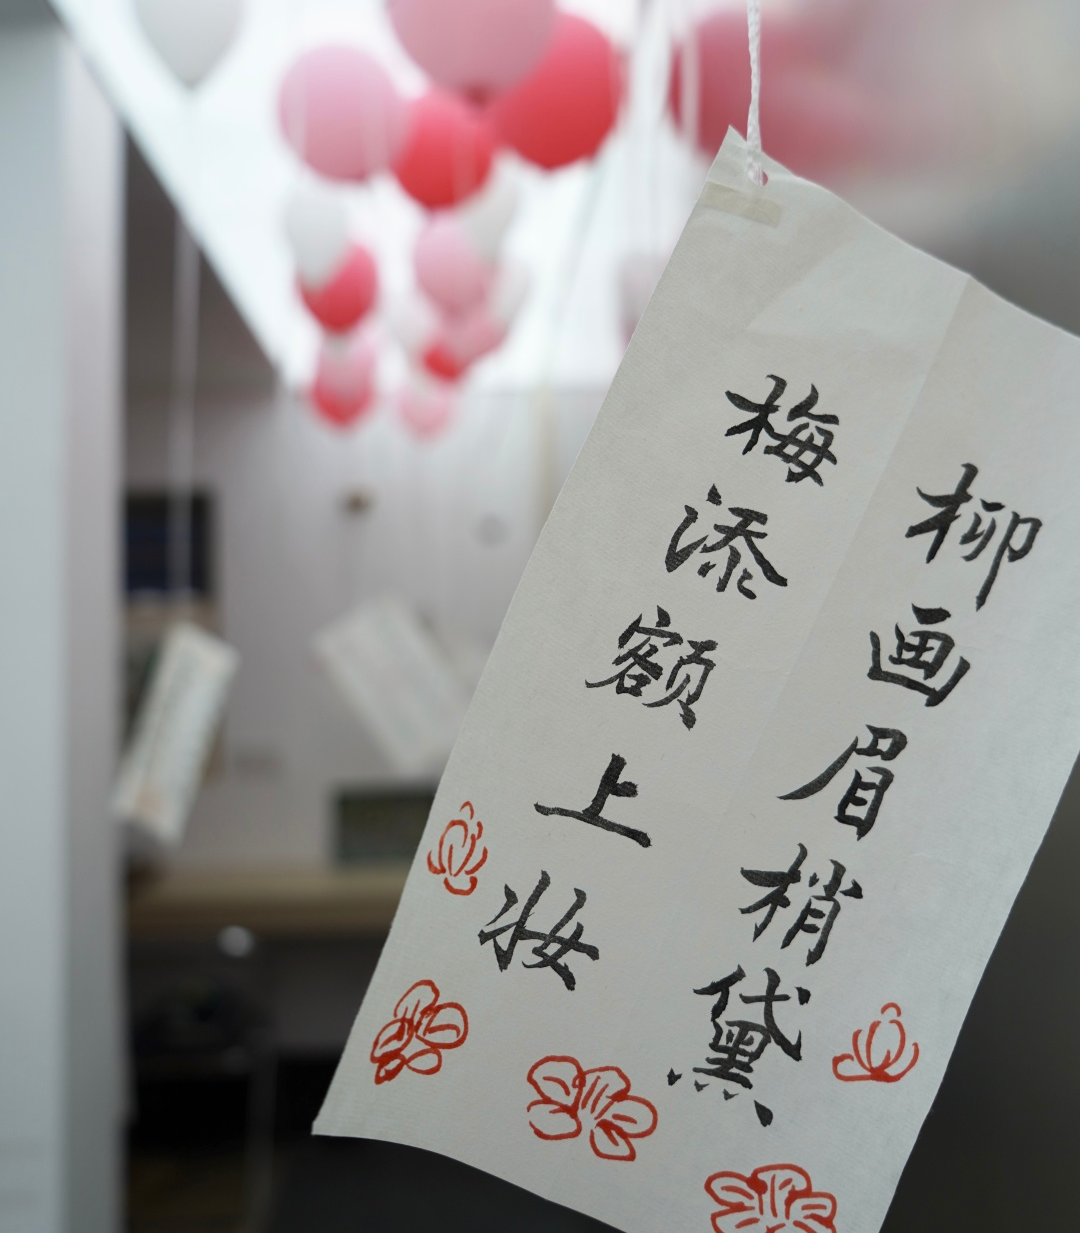 柳画眉梢黛
梅添额上妆